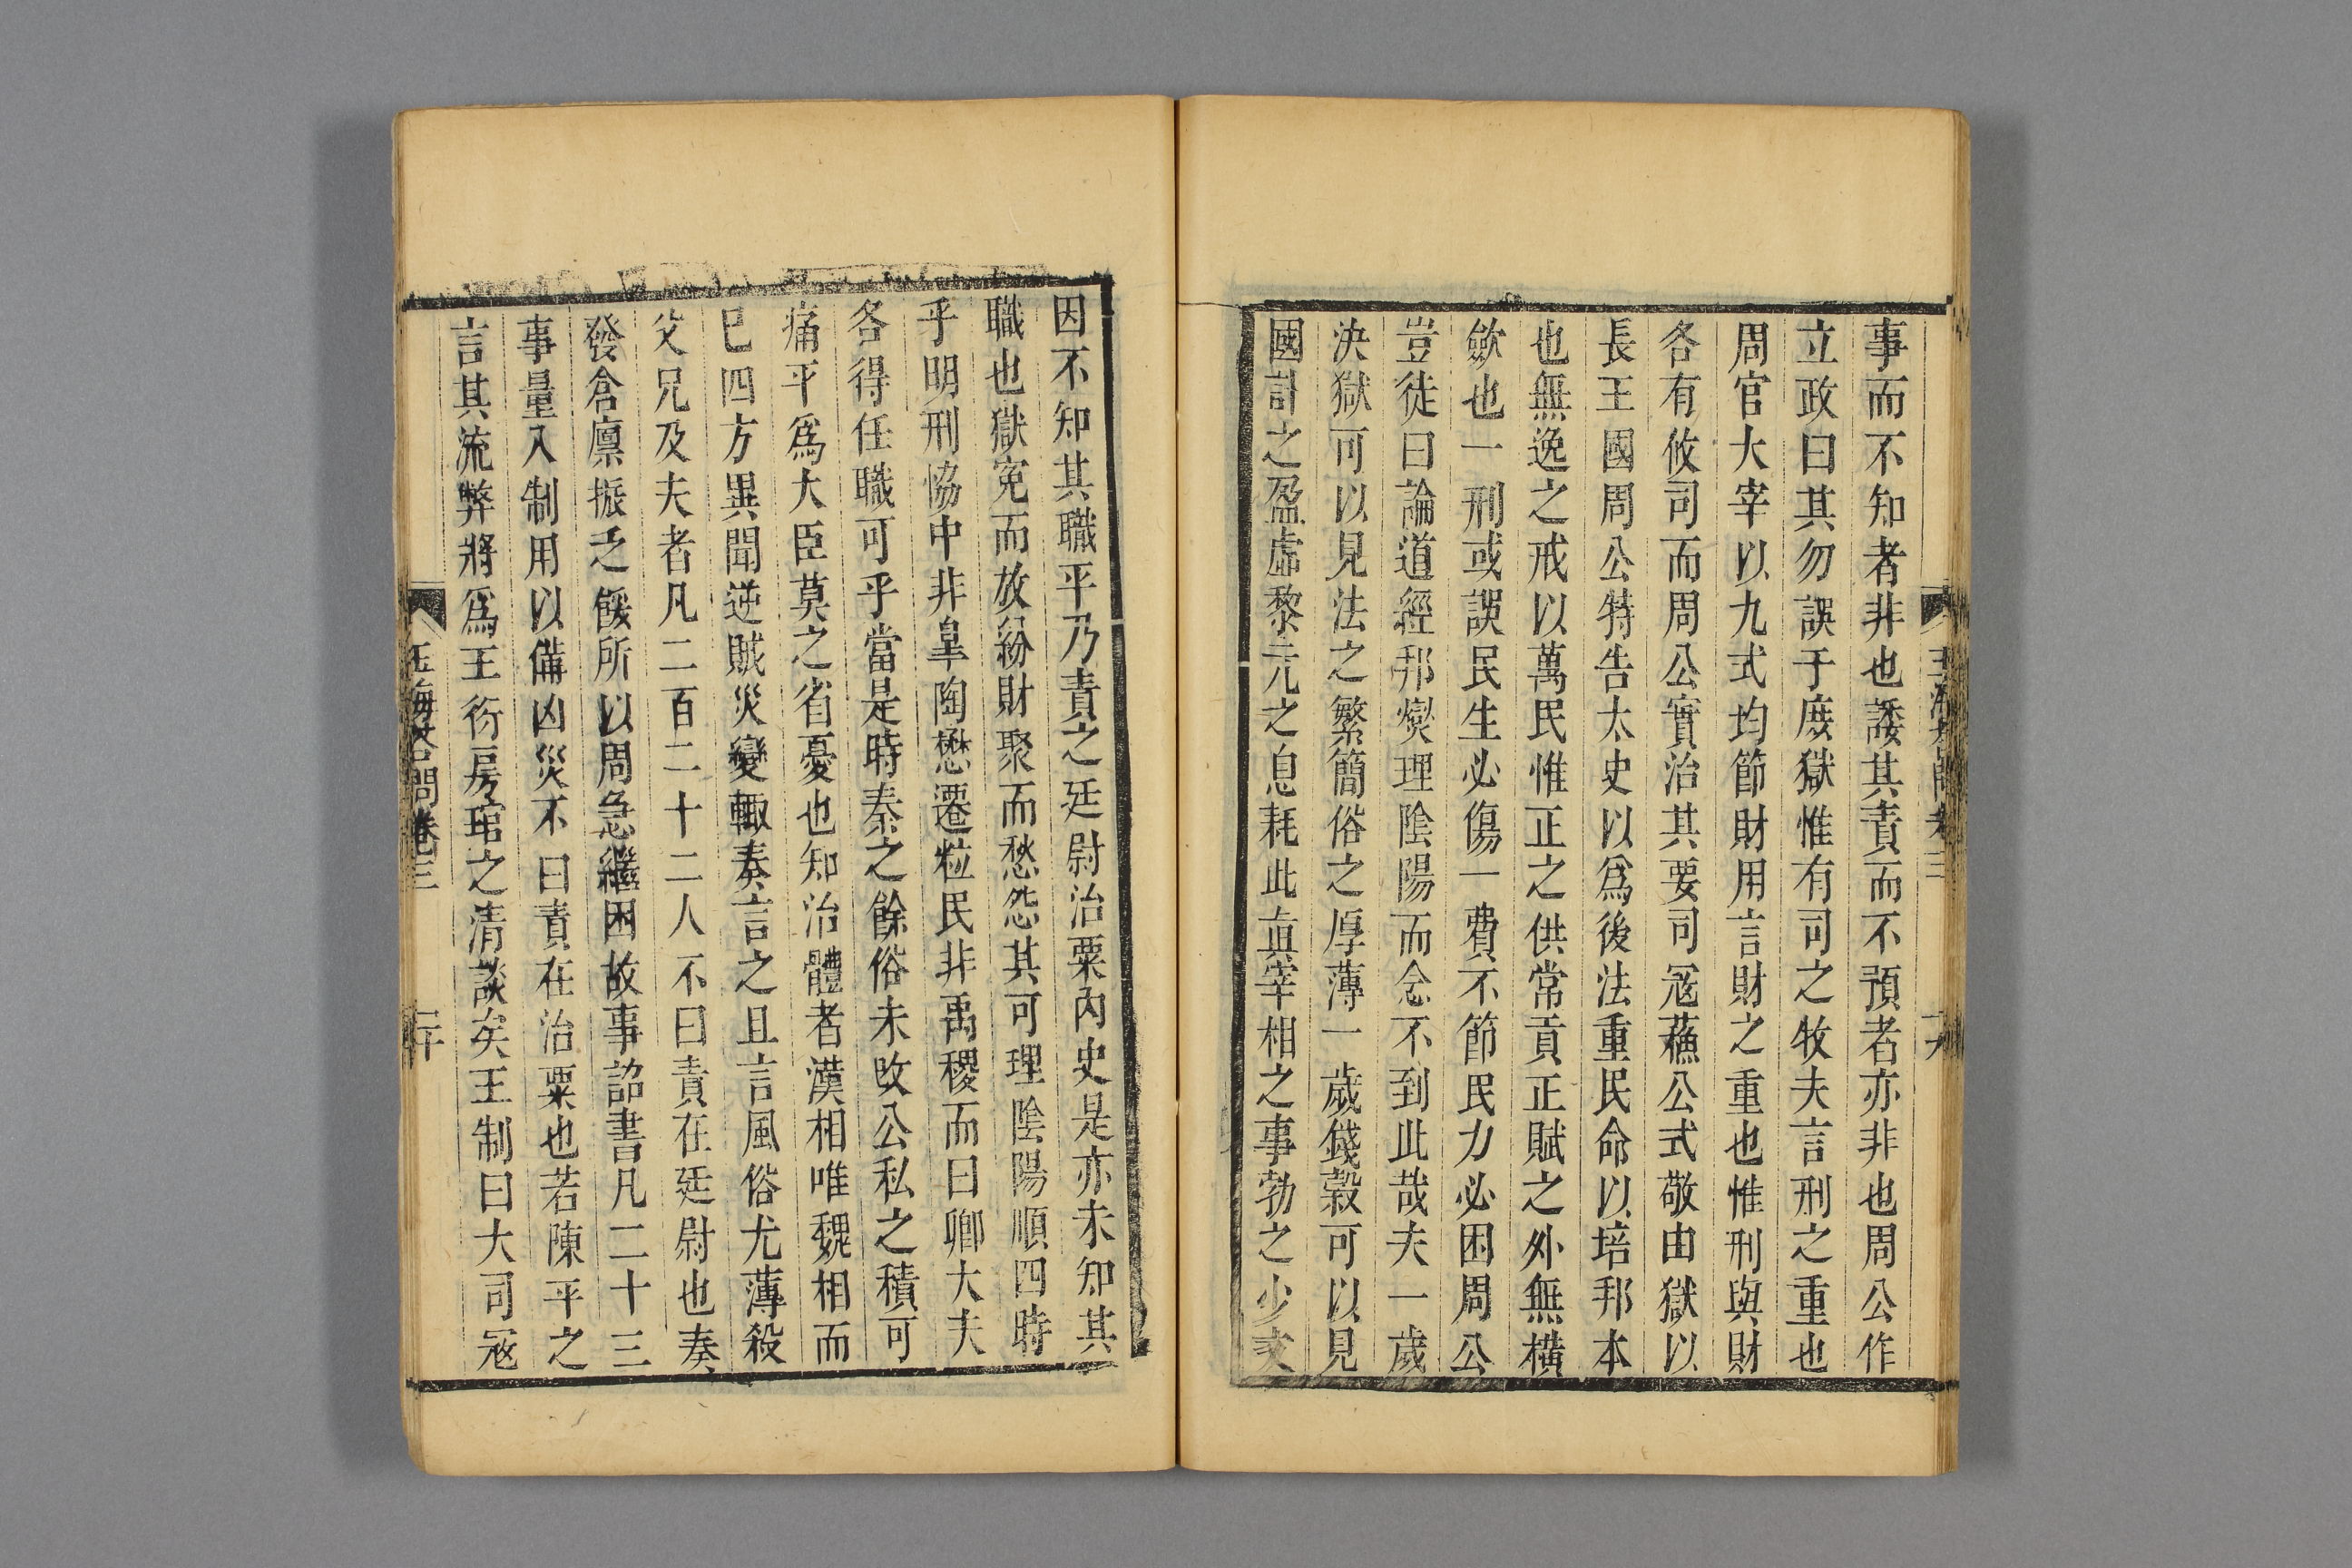 事而不知者非也諉其責而不預者亦非也周公作
立政曰其勿誤于庶獄惟有司之牧夫言刑之重也
周官大宰以九式均節財用言財之重也惟刑與財
各有攸司而周公實治其要司冦蘓公式敬由獄以
長王國周公特告太史以爲後法重民命以培邦本
也無逸之戒以萬民惟正之供常貢正賦之外無横
歛也一刑或誤民生必傷一費不節民力必困周公
豈徒曰論道經邦爕理陰陽而念不到此哉夫一歲
決獄可以見法之繁簡俗之厚薄一歲錢糓可以見
國計之盈虛黎元之息耗此真宰相之事勃之少文
因不知其職平乃責之廷尉治粟內史是亦未知其
職也獄寃而放紛財聚而愁怨其可理陰陽順四時
乎明刑恊中非臯陶懋遷粒民非禹稷而曰卿大夫
各得任職可乎當是時秦之餘俗未攺公私之積可
痛平爲大臣莫之省憂也知治體者漢相唯魏相而
已四方異聞逆賊災變輙奏言之且言風俗尤薄殺
父兄及夫者凡二百二十二人不曰責在廷尉也奏
發倉廪振乏餧所以周急繼困故事詔書凡二十三
事量入制用以備凶災不曰責在治粟也若陳平之
言其流弊將爲王衍房琯之清談矣王制曰大司冦
玉海答問卷三
二十